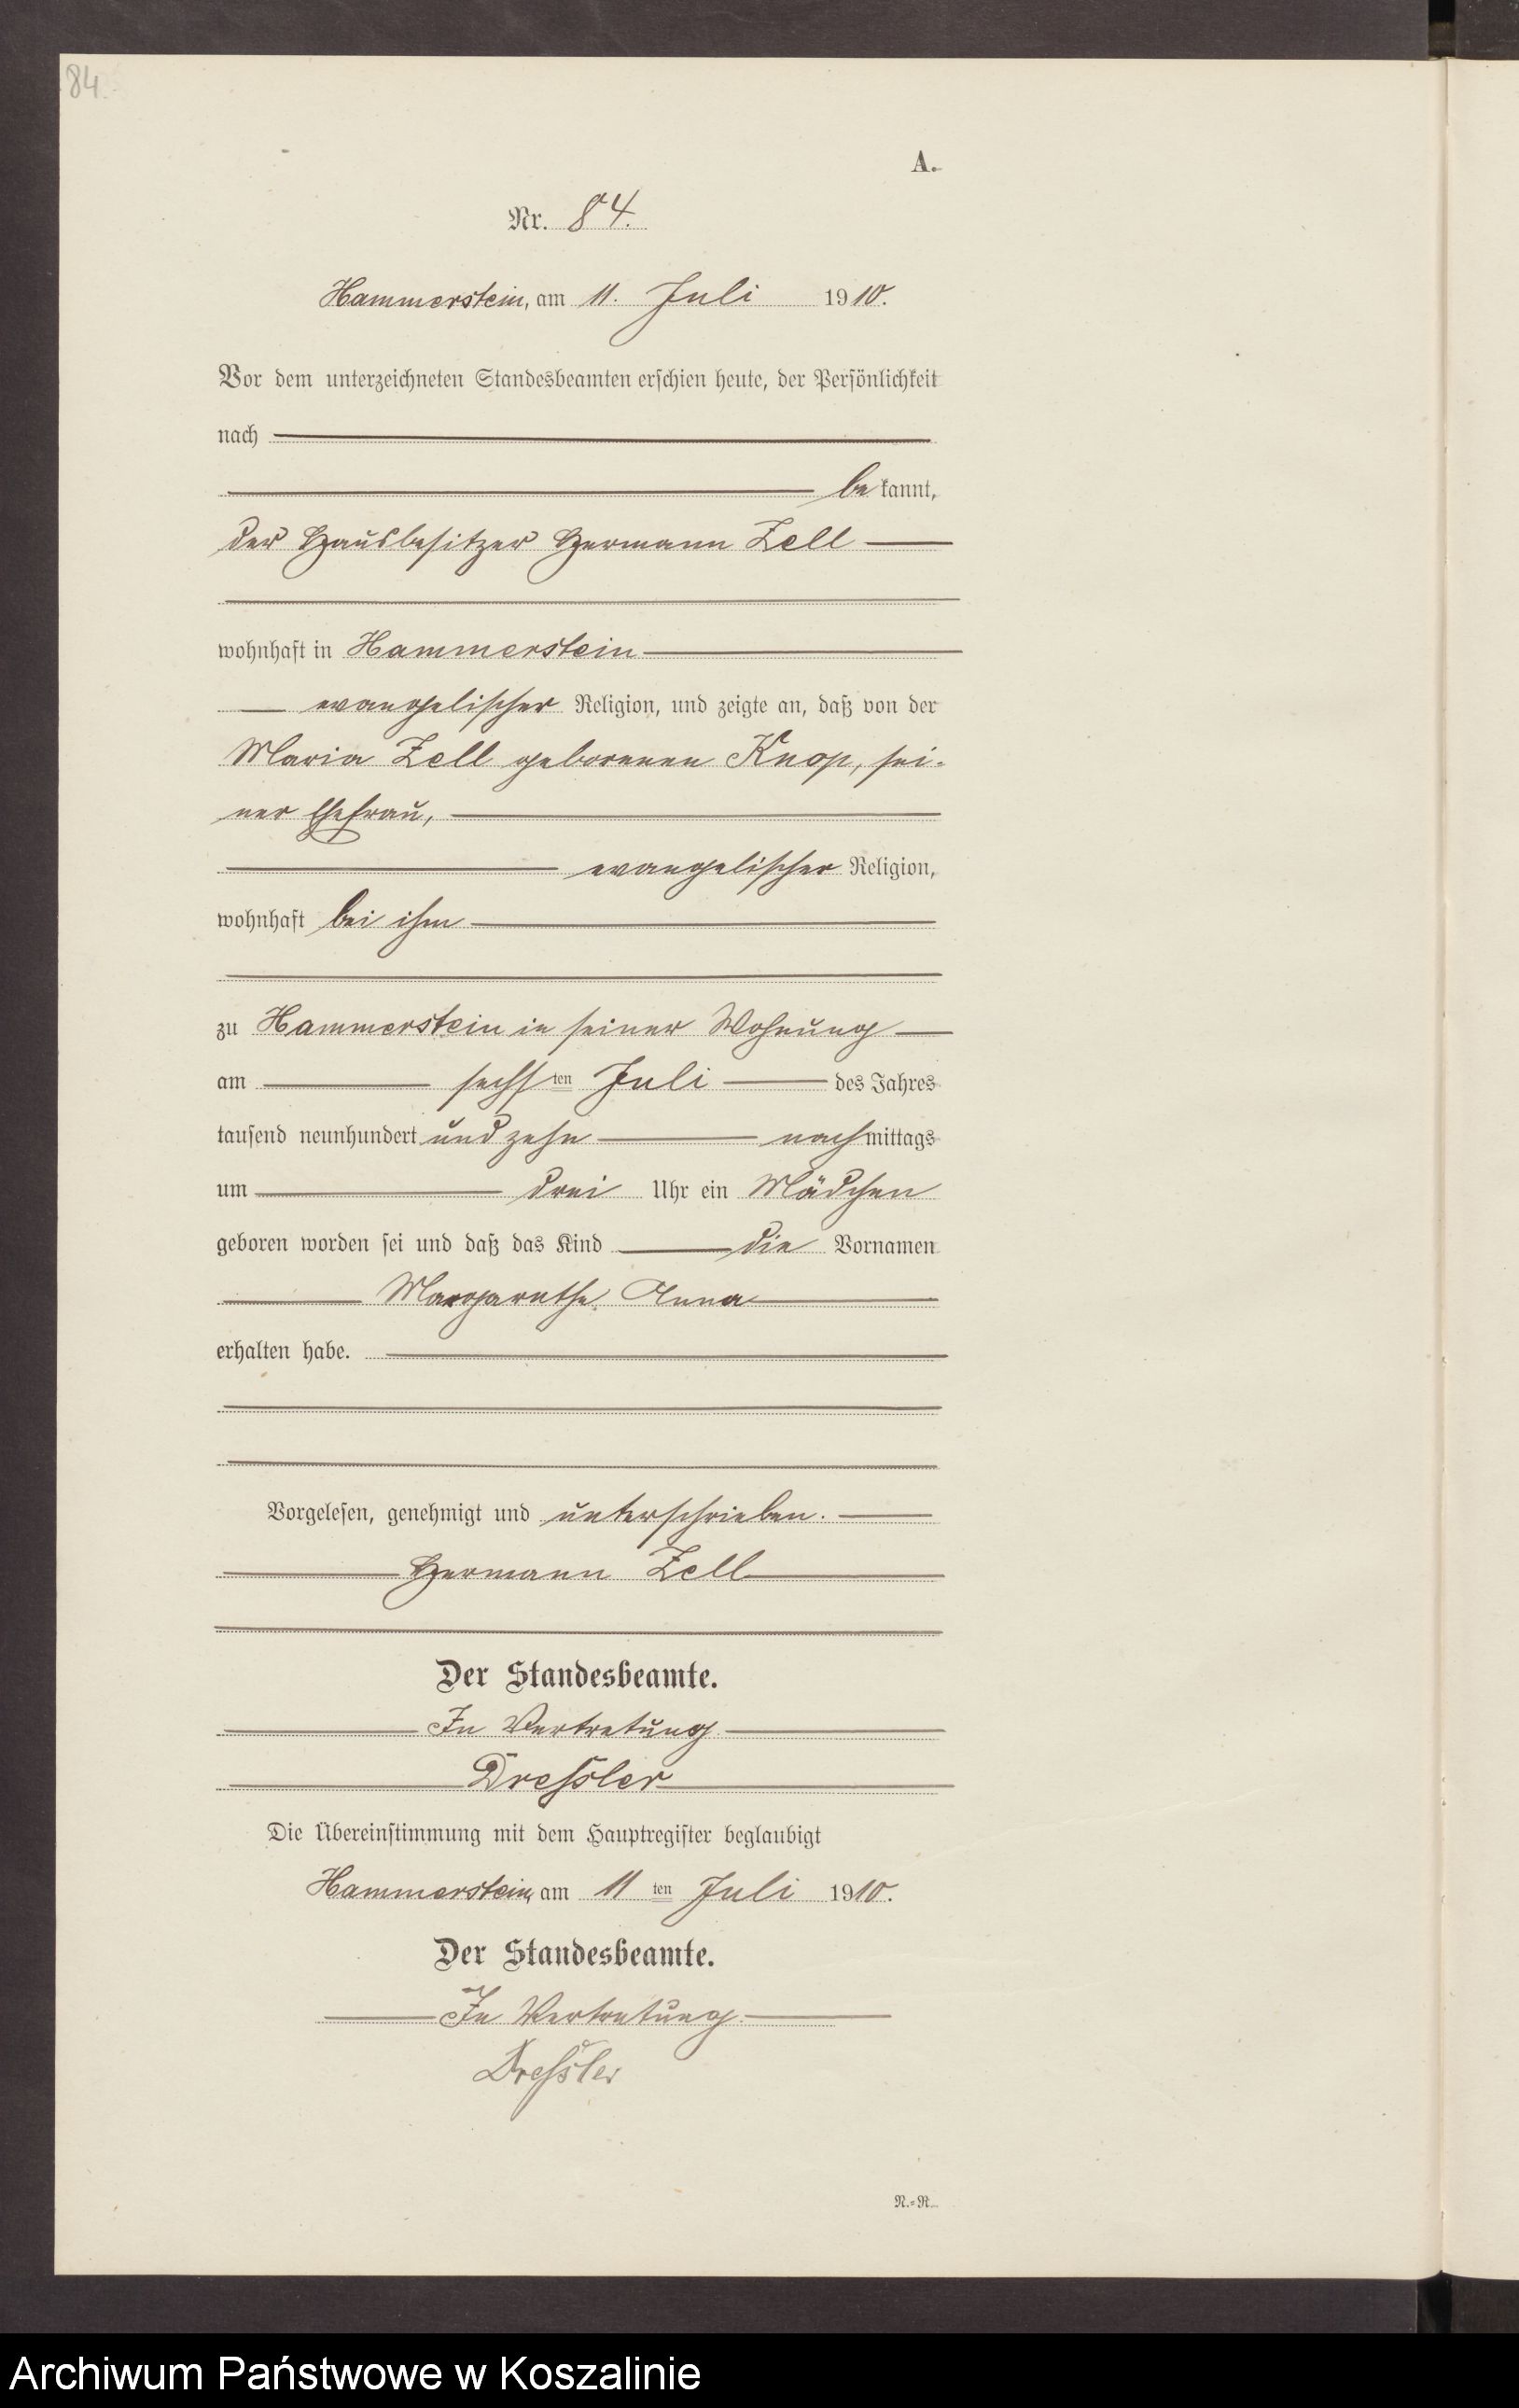 84.
A.
Nr. 84.
Hammerstein, am 11. Juli 1910.
Vor dem unterzeichneten Standesbeamten erschien heute, der Persönlichkeit
nach
bekannt,
der Hausbesitzer Hermann Zell
wohnhaft in Hammerstein
evangelischer Religion, und zeigte an, daß von der
Maria Zell geborenen Knop, sei-
ner Ehefrau,
evangelischer Religion,
wohnhaft bei ihm
zu Hammerstein in seiner Wohnung
am sechsten Juli des Jahres
tausend neunhundert und zehn nachmittags
um drei Uhr ein Mädchen
geboren worden sei und daß das Kind die Vornamen
Margarethe Anna
erhalten habe.
Vorgelesen, genehmigt und unterschrieben.
Hermann Zell
Der Standesbeamte.
In Vertretung
Dressler
Die Übereinstimmung mit dem Hauptregister beglaubigt
Hammerstein, am 11ten Juli 1910.
Der Standesbeamte.
In Vertretung.
Dressler
N.=R.
Archiwum Państwowe w Koszalinie